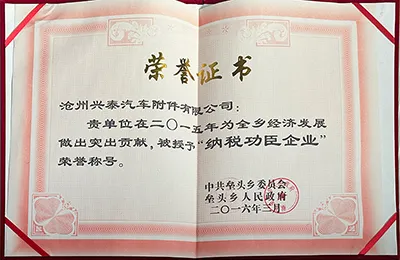 荣誉证书
沧州兴泰汽车附件有限公司:
贵单位在二〇一五年为全乡经济发展
做出突出贡献,被授予“纳税功臣企业”
荣誉称号。
中共垒头乡委员会
垒头乡人民政府
二〇一六年二月